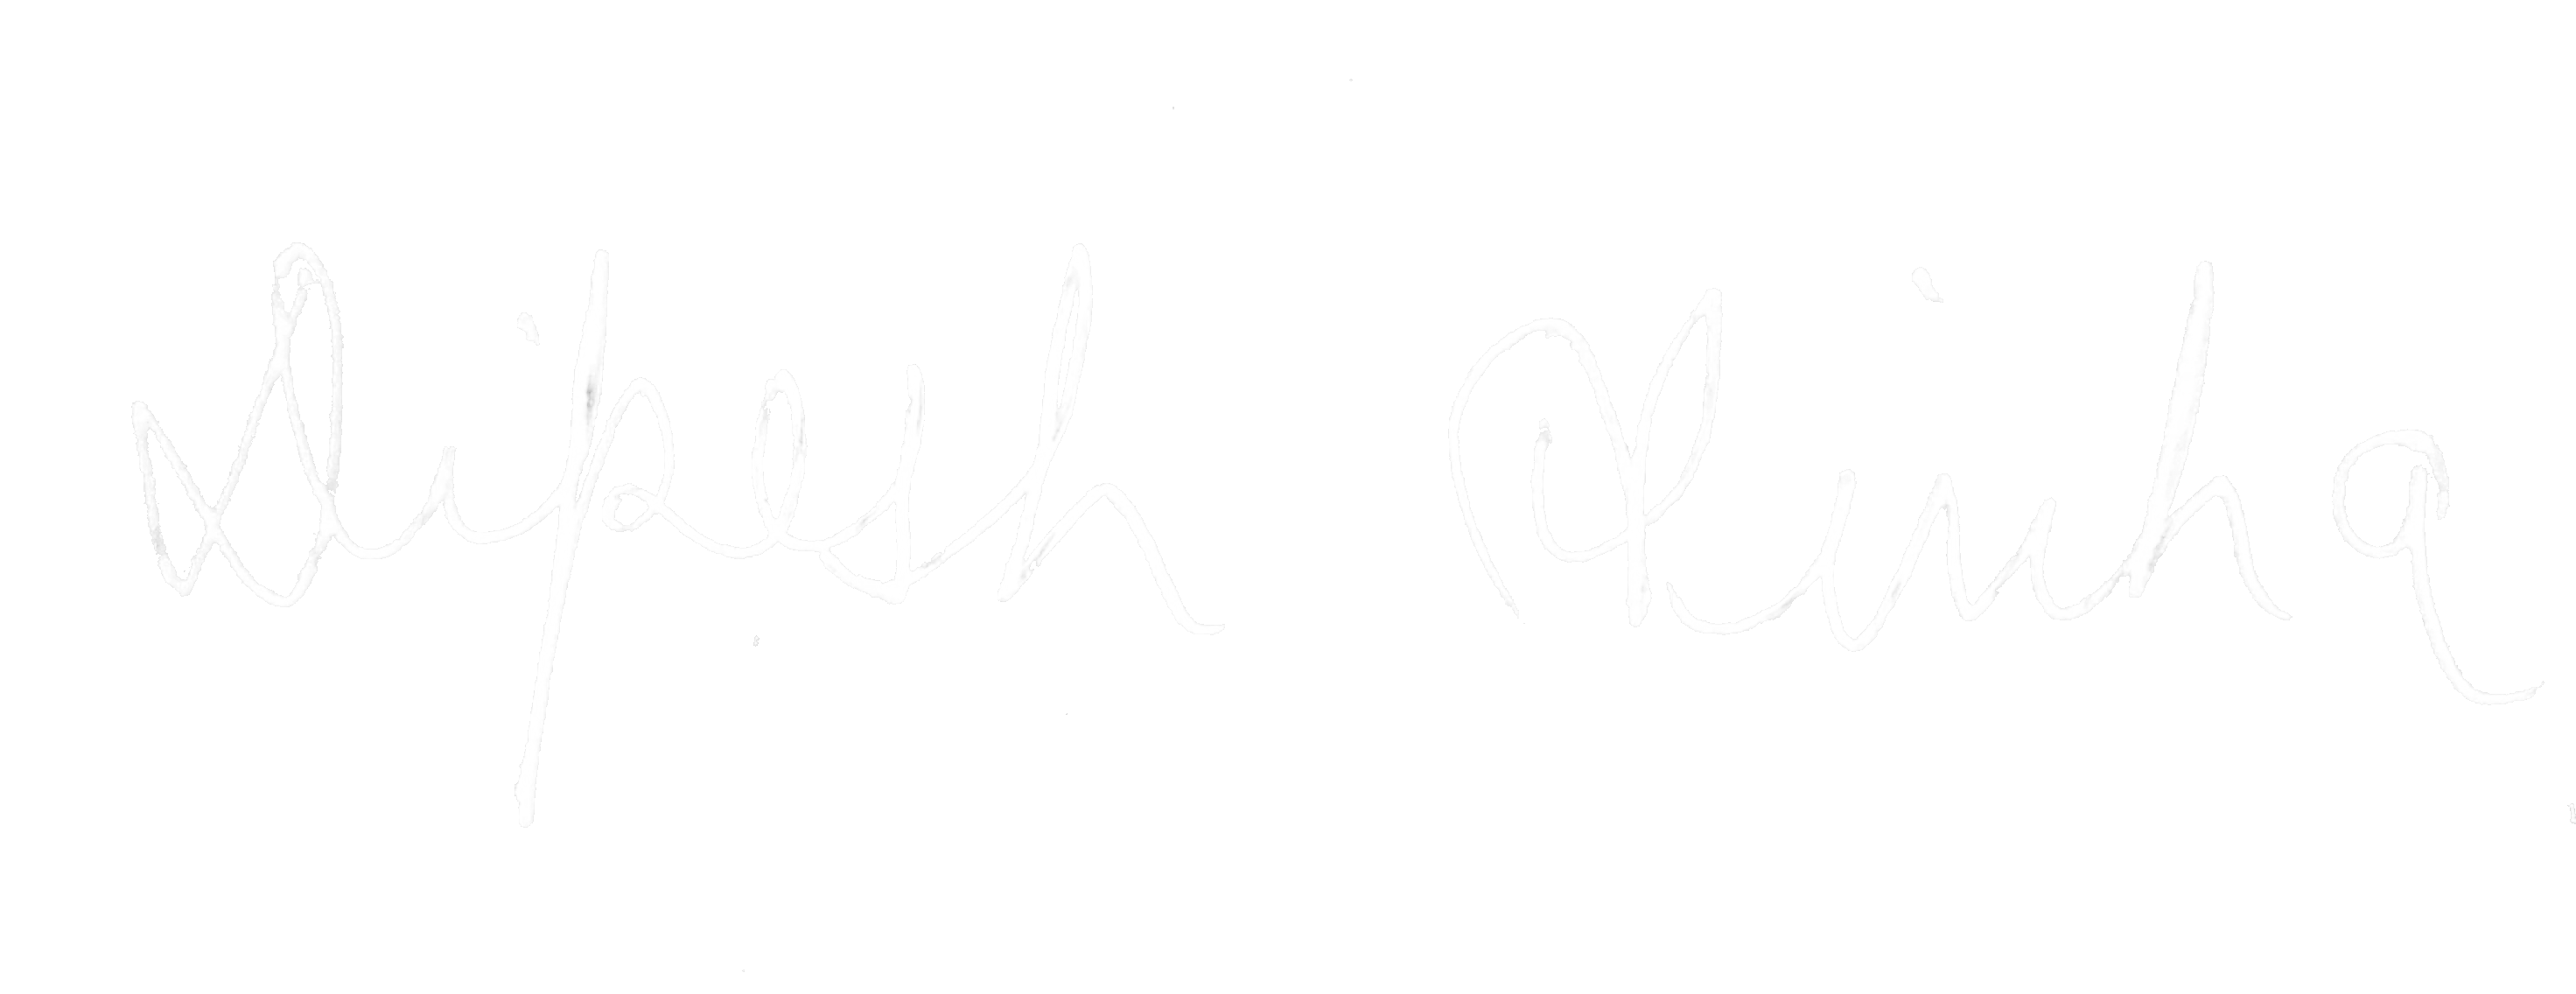 Dipesh Sinha